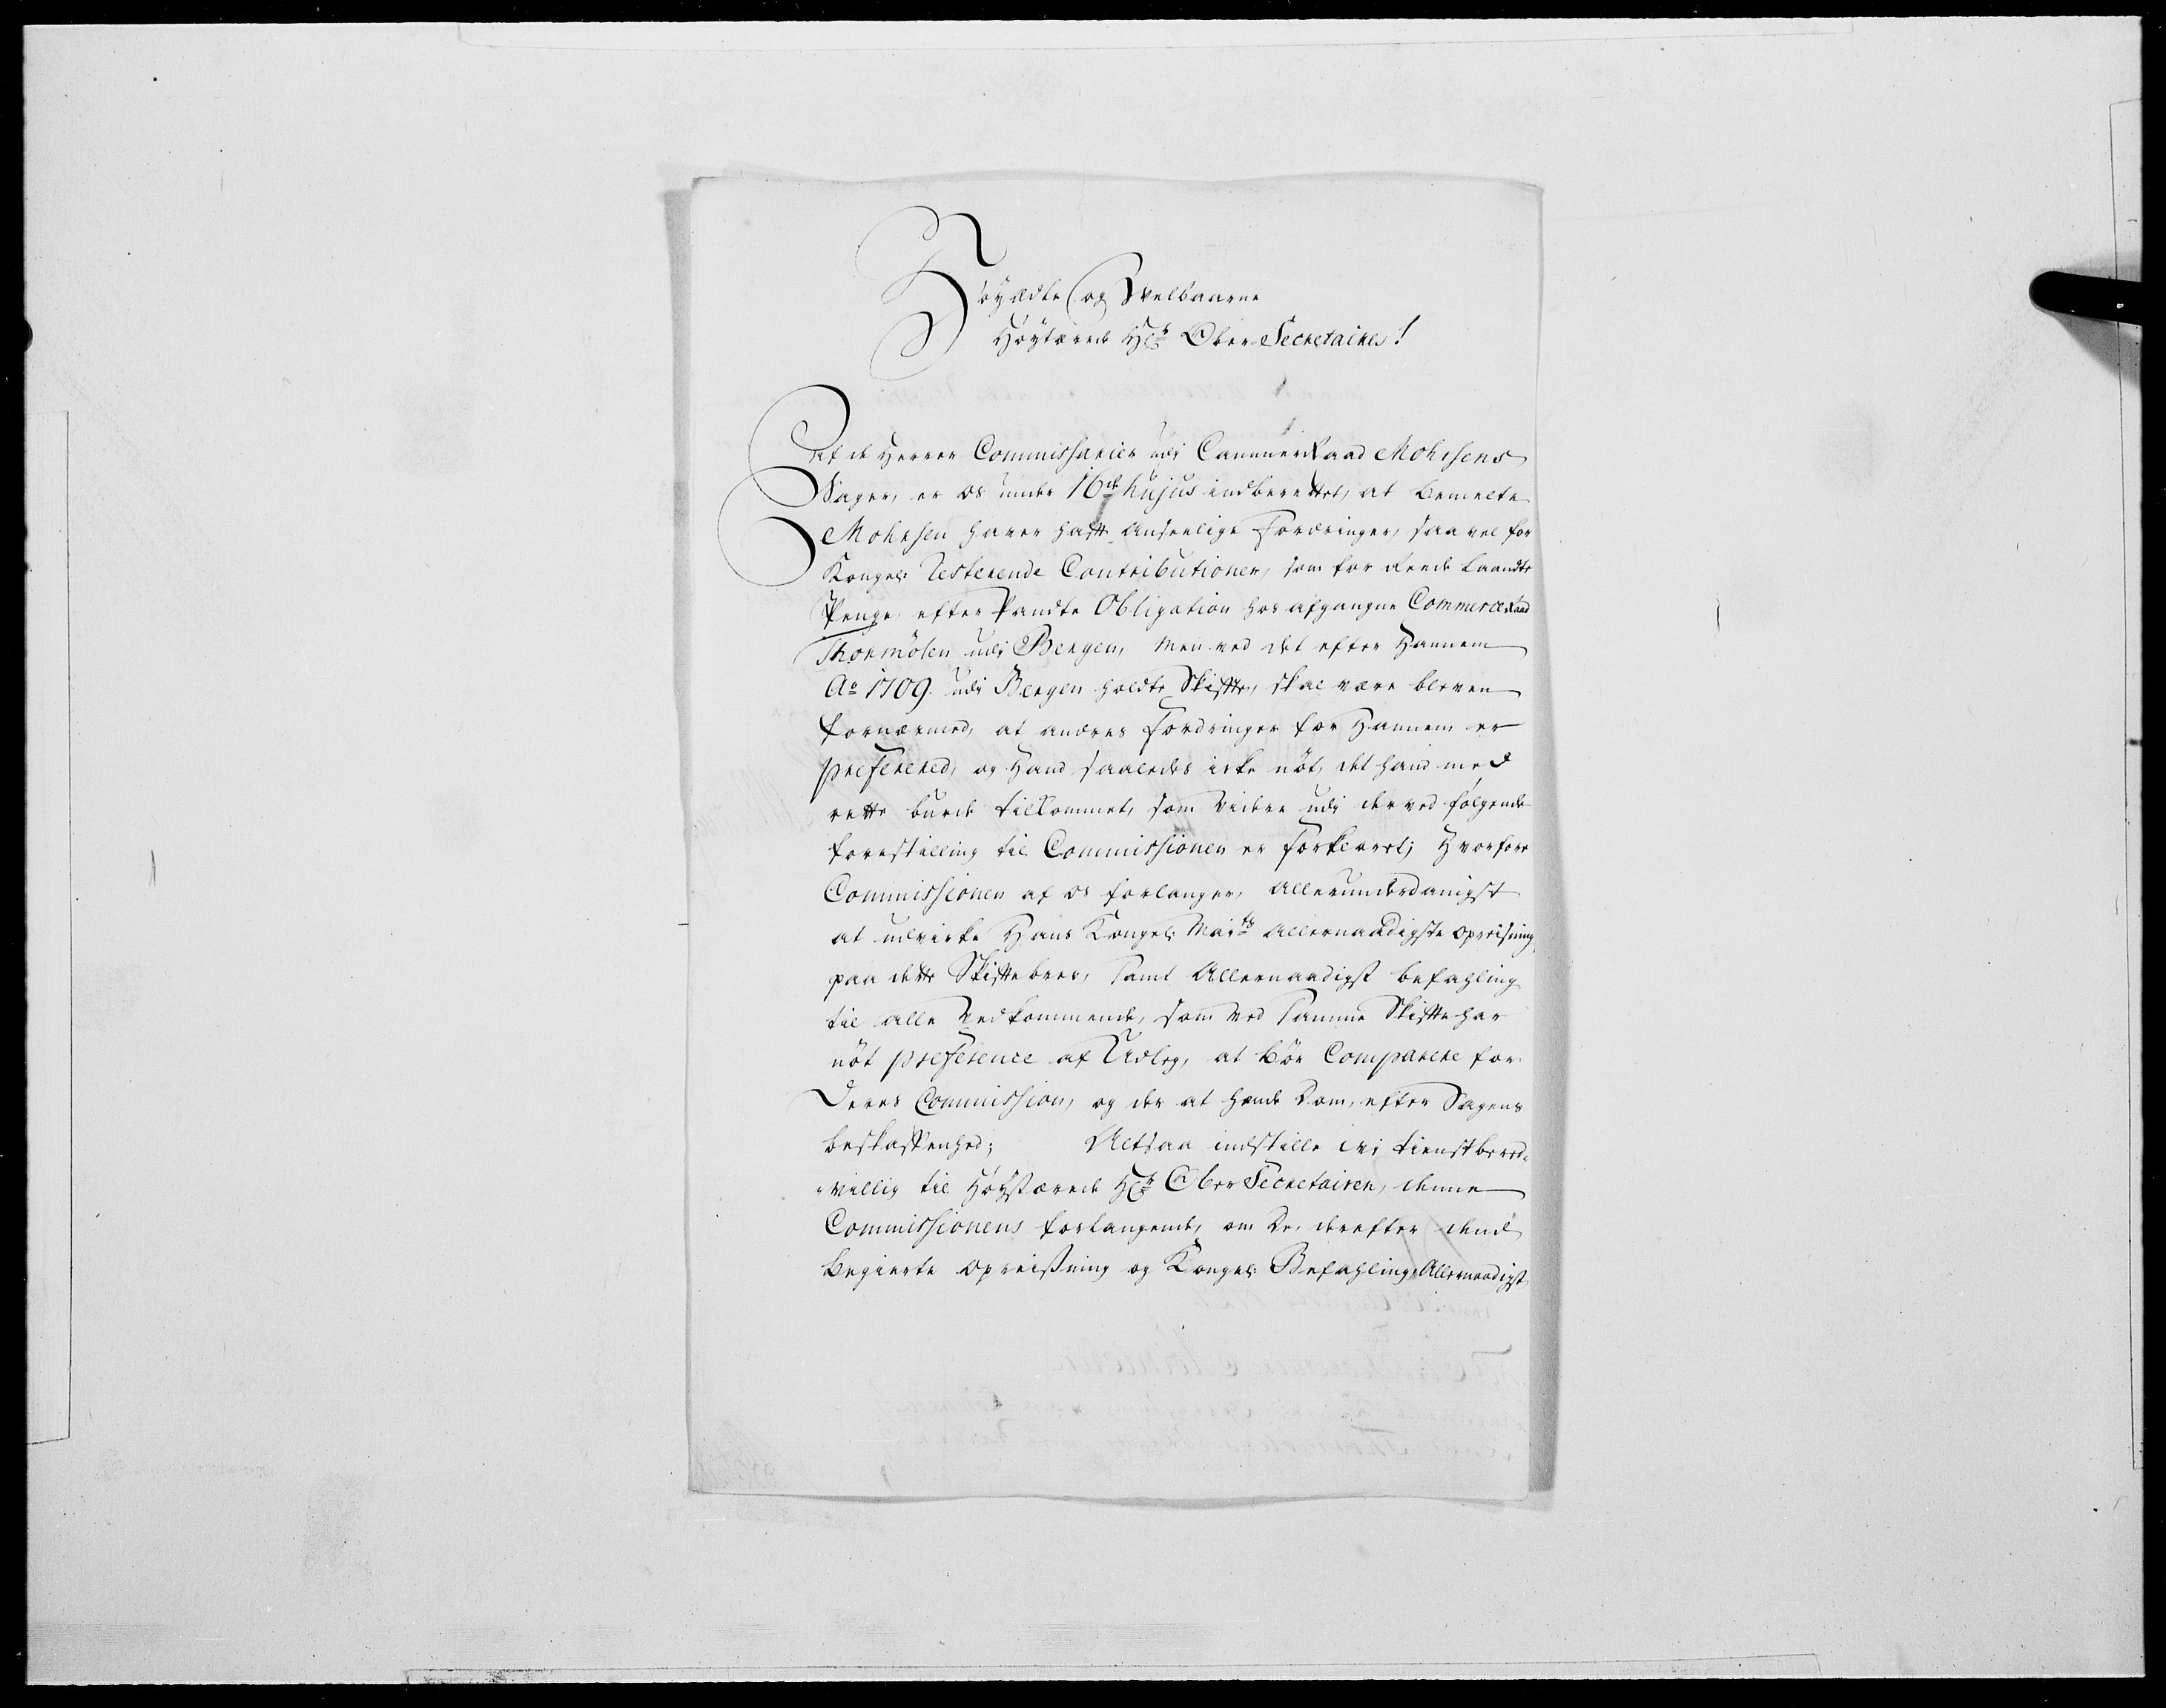 Höyædle og Velbaarne
Höytærede Hr. Ober-Secretairer!
Af de Herrer Commissarier udi Cammerraad Mohrsens
Sager, er os under 16de hujus indberettet, at bemelte
Mohrsen haver hafft anseelige Fordringer, saa vel for
Kongel: Resterende Contributioner, som for deres laandte
Penge, efter Pandte Obligation hos afgangne Commerceraad
Thormölen udi Bergen, Men ved det efter Hannem
Ao 1709. udi Bergen holdte Skiffte, skal være bleven
fornærmed, at andres Fordringer for Hannem er
preferered, og Hand saaledes icke nöt, det hand med
rette burde tilkommet, som videre udi derved fölgende
forestilling til Commissionen er Forklaret; Hvorfore
Commissionen af os forlanger, allerunderdanigst
at udvirke Hans Kongel: May:ts allernaadigste opreisning
paa dette Skifftebrev, samt Allernaadigst befahling
til alle Vedkommende, som ved samme Skiffte har
nöt preference af Udleg, at bör Comparere for
Deres Commission, og der at hende Dom, efter Sagens
beskaffenhed; Altsaa indstille vi tienstbered-
villig til Höystærede Hr. Ober Secretairen, denne
Commissionens forlangende, om De. derefter dend
begierte opreißning og Kongel: Befahling Allernaadigst